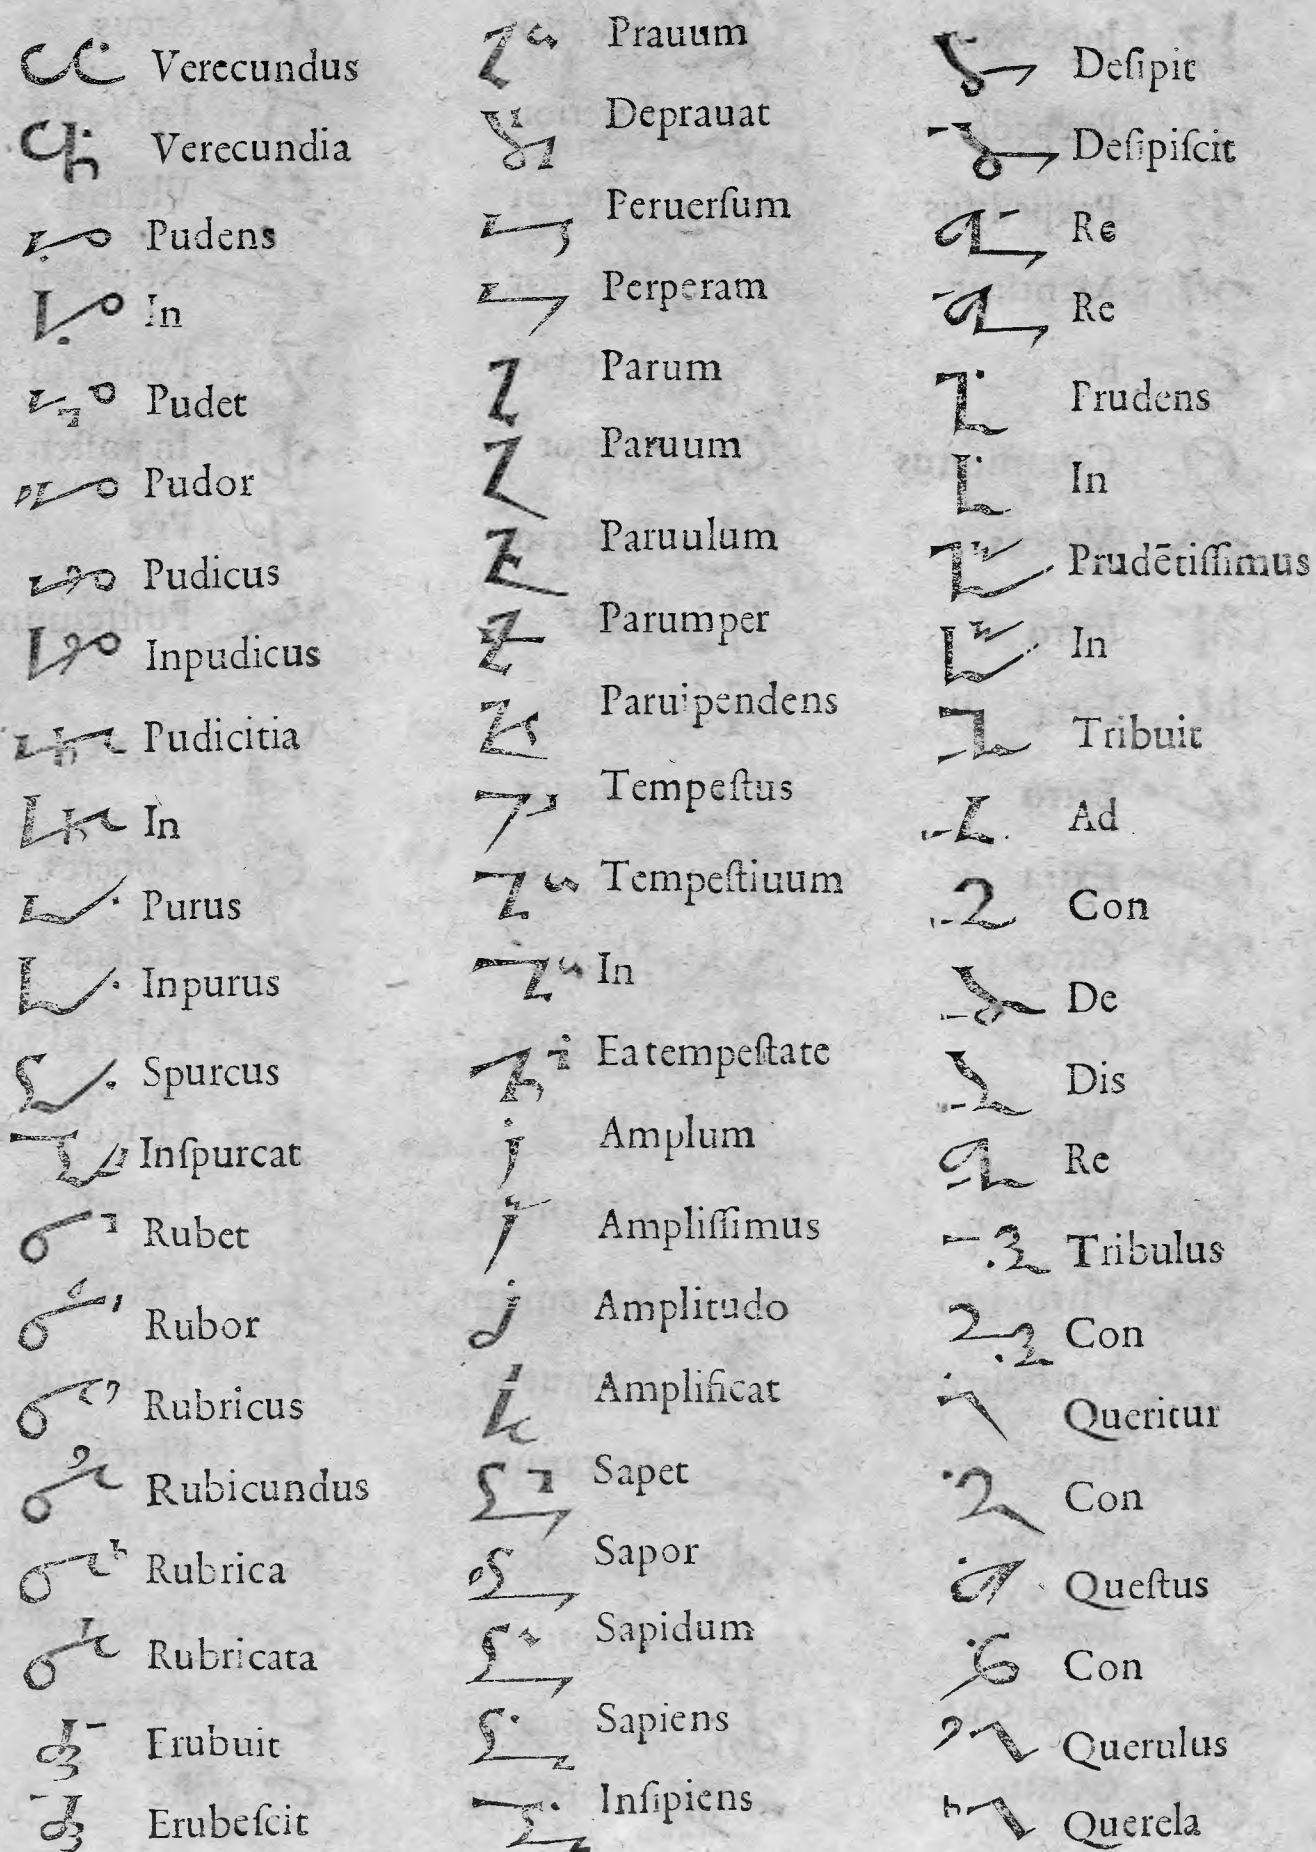 Verecundus
Verecundia
Pudens
In
Pudet
Pudor
Pudicus
Inpudicus
Pudicitia
In
Purus
Inpurus
Spurcus
Inſpurcat
Rubet
Rubor
Rubricus
Rubicundus
Rubrica
Rubricata
Erubuit
Erubeſcit
Prauum
Deprauat
Peruerſum
Perperam
Parum
Paruum
Paruulum
Parumper
Paruipendens
Tempeſtus
Tempeſtiuum
In
Ea tempeſtate
Amplum
Ampliſſimus
Amplitudo
Amplificat
Sapet
Sapor
Sapidum
Sapiens
Inſipiens
Deſipit
Deſipiſcit
Re
Re
Prudens
In
Prudētiſſimus
In
Tribuit
Ad
Con
De
Dis
Re
Tribulus
Con
Queritur
Con
Queſtus
Con
Querulus
Querela